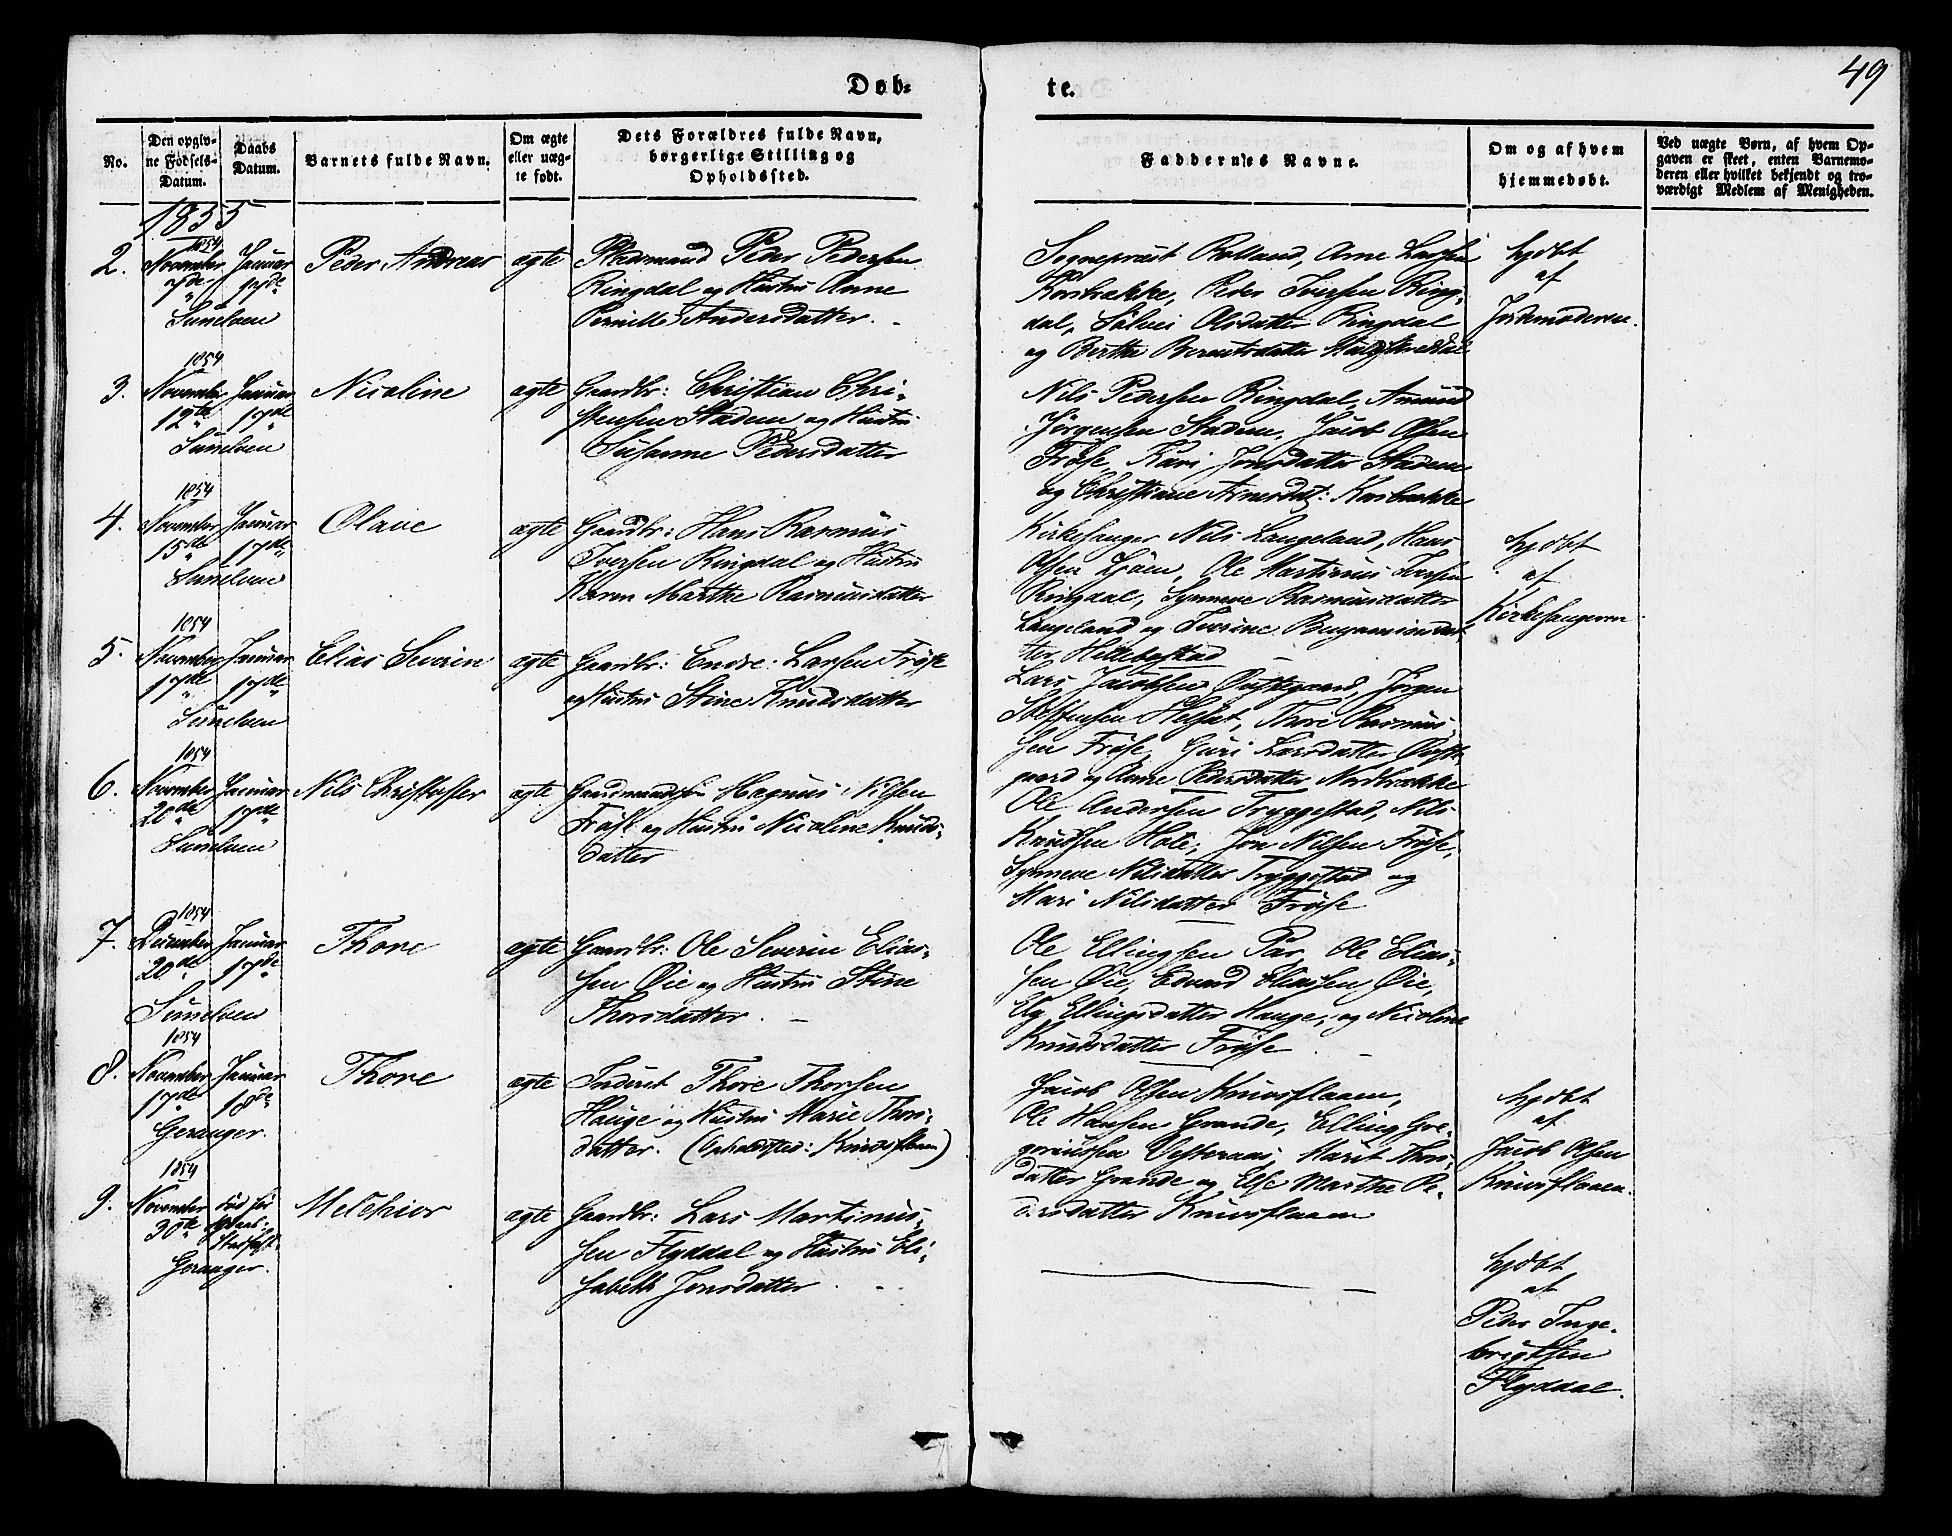 Døb-
te.
49
No.
Den opgiv-
ne Fødsels-
Datum.
Daabs
Datum.
Barnets fulde Navn.
Om ægte
eller uæg-
te født.
Dets Forældres fulde Navn,
borgerlige Stilling og
Opholdssted.
Faddernes Navne.
Om og af hvem
hjemmedøbt.
Ved uægte Børn, af hvem Op-
gaven er skeet, enten Barnemo-
deren eller hvilket bekjendt og tro-
værdigt Medlem af Menigheden.
1855
2.
1854
November
Januar
17de
Sunelven
Peder Andreas
ægte
Peder Pedersen
Ringdal og Hustru Anne
Pernille Andersdatter.
Sogneprest Rolland, Arne Larsen
Korsbrække, Peder Iversen Ring-
dal, Sølvei Olsdatter Ringdal
og Berthe Berentsdatter
hjdbt
af
Jordemoderen.
3.
1854
November
12te
Sunelven
Januar
17de
Nicoline
ægte
Gaardbr: Christian Chri-
stensen Stadem og Hustru
Susanne Pedersdatter
Nils Pedersen Ringdal, Amund
Jørgensen Stadem, Jacob Olsen
Frøse, Kari Jonsdatter Stadem
og Christiane Arnesdat: Korsbrække
4.
1854
November
15de
Sunelven
Januar
17de
Olave
ægte
Gaardbr: Hans Rasmus
Iversen Ringdal og Hustru
Karen Marthe Rasmusdatter
Kirkesanger Nils Langeland, Hans
Olsen Ljøen, Ole Martinus Iversen
Ringdal, Synneve Rasmusdatter
Langeland og Iverine Benjaminsdat-
ter Hellebostad
hjdbt
af
Kirkesangeren
5.
1854
November
17de
Sunelven
Januar
17de
Elias Severin
ægte
Gaardbr: Endre Larssen Frøse
og Hustru Stine Knudsdatter
Lars Jacobsen Opstegaard, Jørgen
Steffensen Helset, Thore Rasmus-
sen Frøse, Guri Larsdatter Opste-
gaard og Anne Pedersdatter Korsbrække
6.
1854
November
20de
Sunelven
Januar
17de
Nils Christoffer
ægte
Gaardmandssøn Magnus Nilsen
Frøse og Hustru Nicoline Knuds-
datter
Ole Andersen Tryggestad, Nils
Knudsen Hole, Jon Nilsen Frøse,
Synneve Nilsdatter Tryggestad og
Mari Nilsdatter Frøse
7.
1854
December
20de
Sunelven
Januar
17de
Thore
ægte
Gaardbr: Ole Severin Elias-
sen Øie og Hustru Stine
Thorsdatter.
Ole Ellingsen Ole Elias-
sen Øie, Edvard Eliassen Øie,
Ellingsdatter Hauge, og Nicoline
Knudsdatter Frøse.
8.
1854
November
17de
Geranger.
Januar
18de
Thore
ægte
Inderst Thore Thorsen
Hauge og Hustru Marie Thors-
datter. (Opholdssted: Knivsflaaen)
Jacob Olsen Knivsflaaen,
Ole Hansen Grande, Elling Gre-
goriussen Vesteraas, Marit Thors-
datter Grande og Else Marthe Pe-
dersdatter Knivsflaaen
hjdbt
af
Jacob Olsen
Knivsflaaen.
9.
1854
November
30te
Geranger.
Død før
Daabs-
Stadfæst.
Melchior
ægte
Gaardbr: Lars Martinus-
sen Flyddal og Hustru Eli-
sabeth Jonsdatter.
hjdbt
af
Peder Inge-
brigtsen
Flyddal.